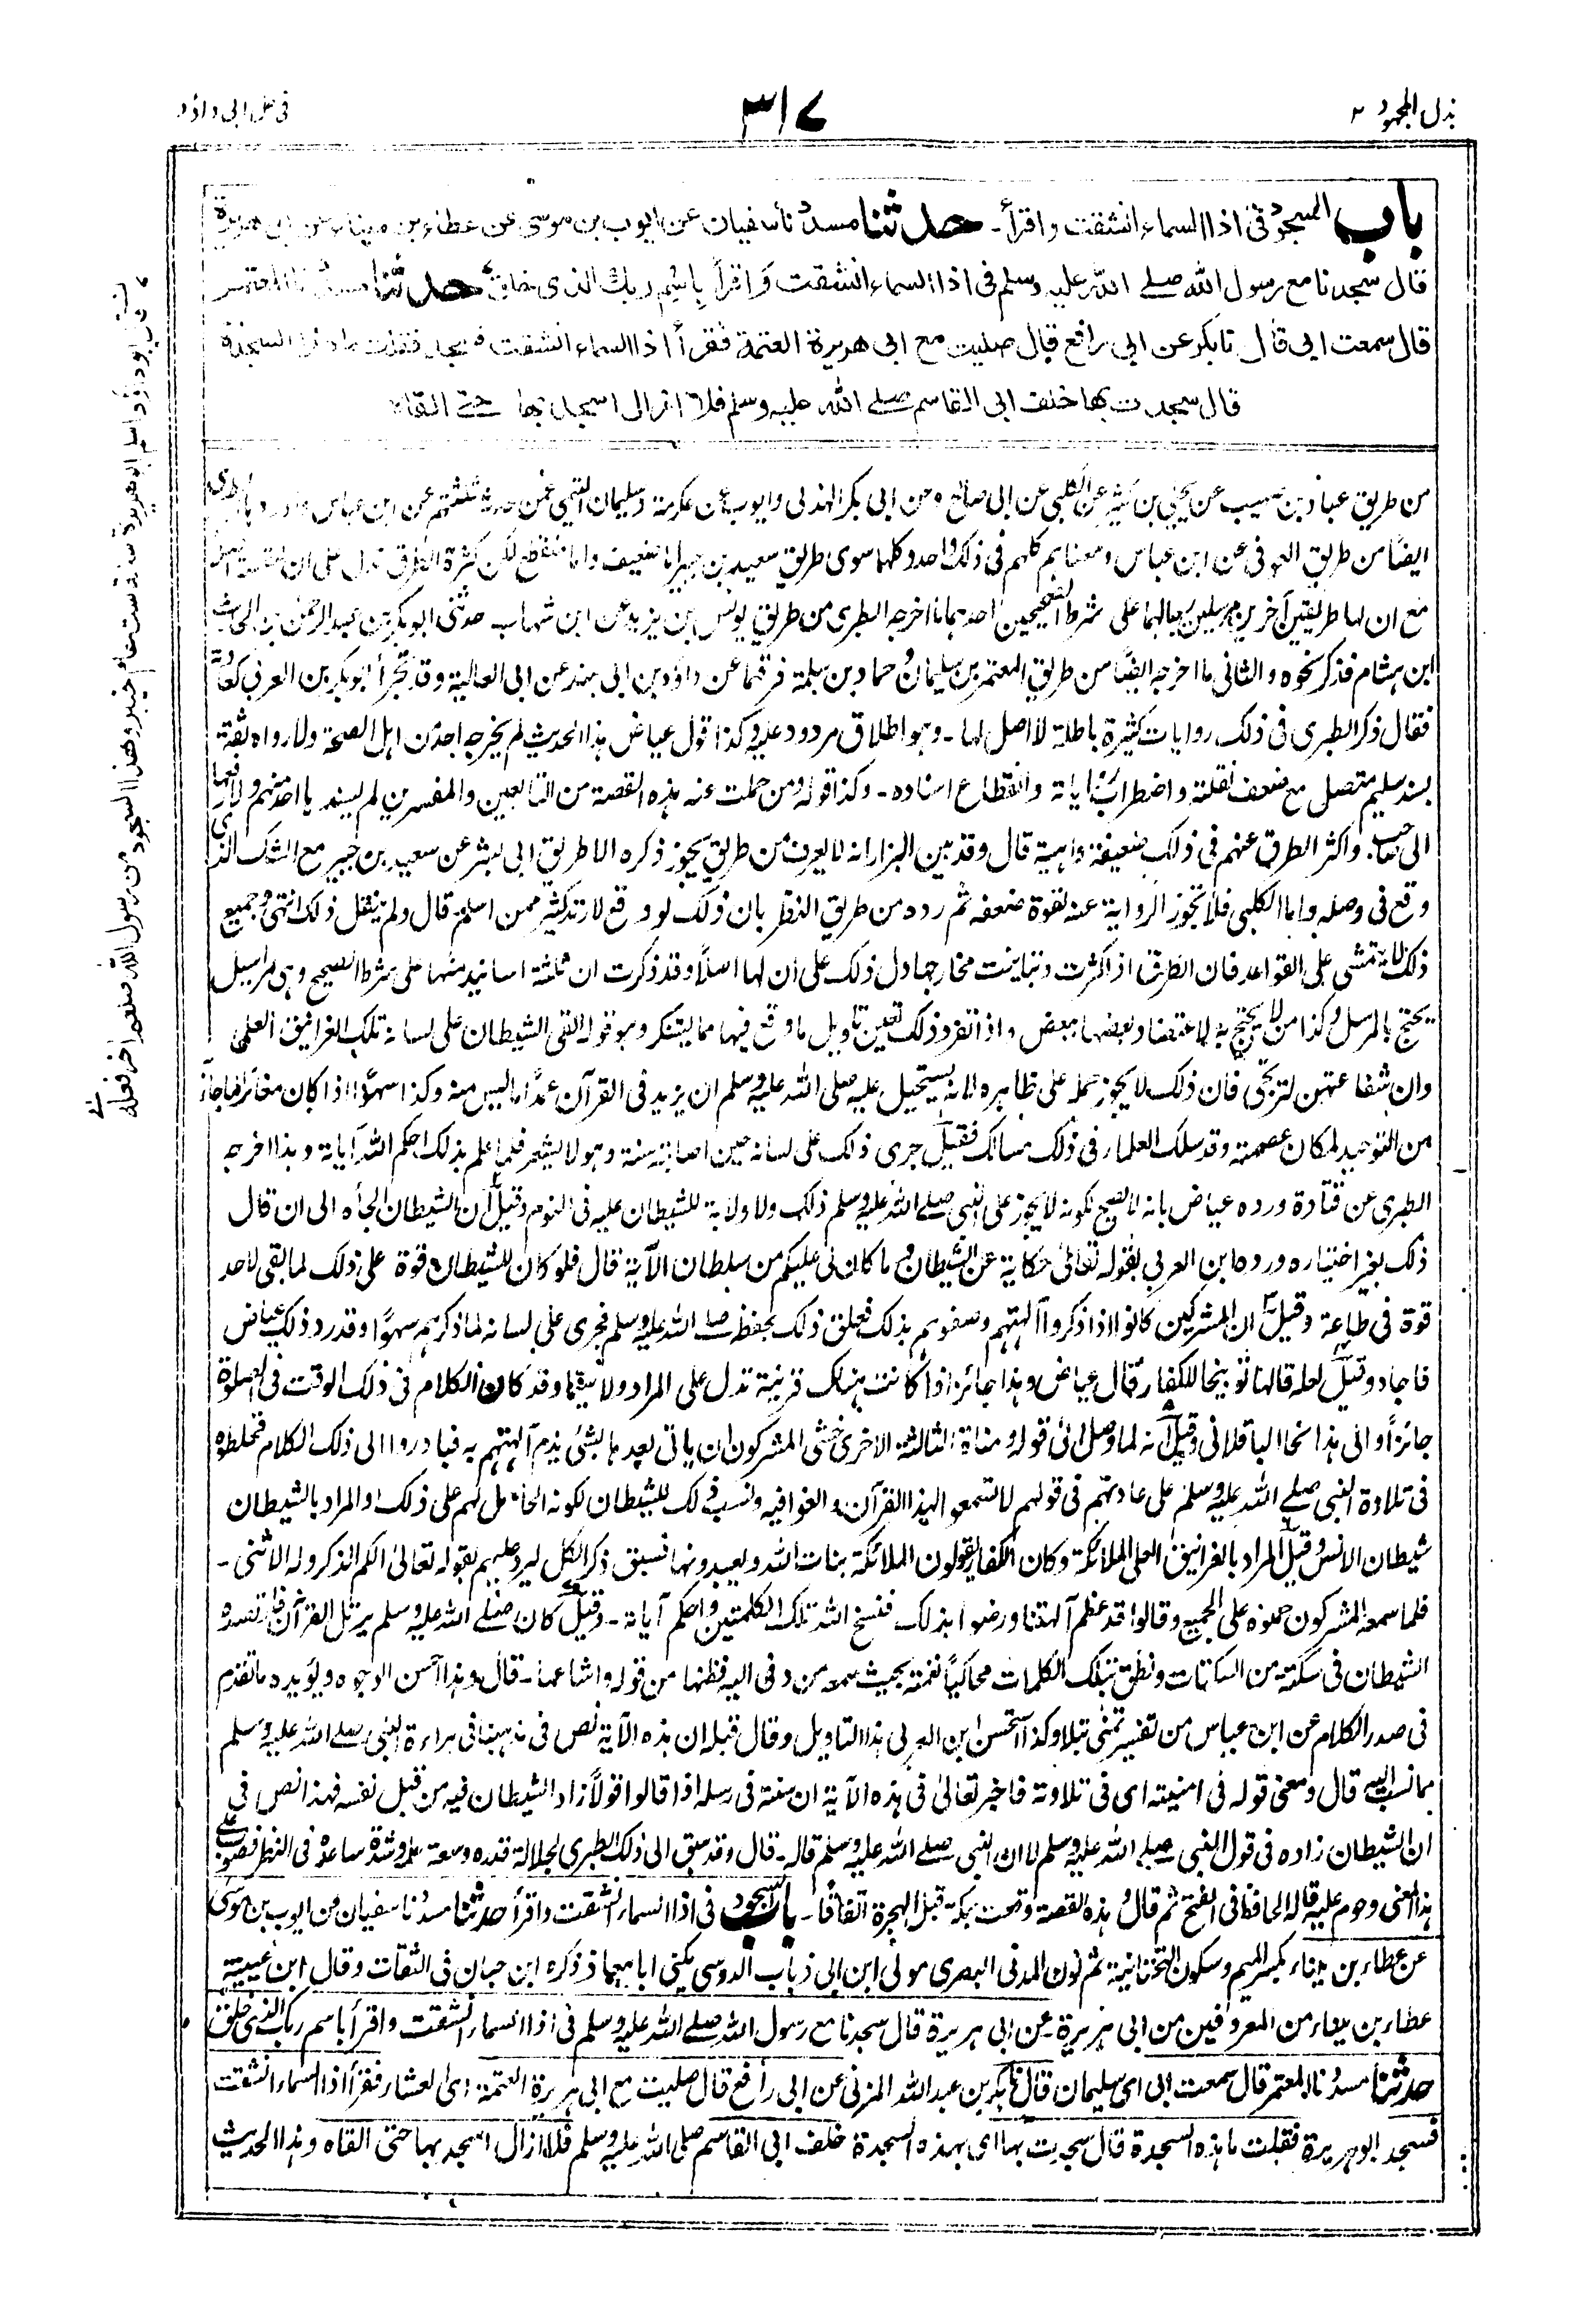 بذل المجهود ٢
٣١٧
في حل ابي داؤد
باب السجود في اذا السماء انشقت واقرأ - حدثنا مسدد نا سفيان عن ايوب بن موسى عن عطاء بن ميناء عن ابى هريرة
قال سجدنا مع رسول الله صلے الله عليه وسلم فى اذا السماء انشقت واقرأ باسم ربك الذى خلق حدثنا مسدد نا المعتمر
قال سمعت ابى قال نا بكر عن ابى رافع قال صليت مع ابى هريرة العتمة فقرأ اذا السماء انشقت فسجد فقلت ما هذه السجدة
قال سجدت بها خلف ابى القاسم صلے الله عليه وسلم فلا ازال اسجد بها حتے القاه
من طريق عباد بن صهيب عن يحيى بن كثير عن الكلبي عن ابى صالح وعن ابى بكر الهذلى وايوب عن عكرمة وسليمان التيمى عمن حدثه ثلثتهم عن ابن عباس واوردها الطبرى
ايضًا من طريق العوفى عن ابن عباس ومعناهم كلهم فى ذلك واحد وكلها سوى طريق سعيد بن جبير اما ضعيف واما منقطع لكن كثرة الطرق تدل على ان للقصة اصلًا
مع ان لها طريقين آخرين مرسلين رجالهما على شرط الصحيحين احدهما ما اخرجه الطبرى من طريق يونس بن يزيد عن ابن شهاب حدثنى ابو بكر بن عبد الرحمن بن الحارث
ابن هشام فذكر نحوه والثانى ما اخرجه ايضًا من طريق المعتمر بن سليمان وحماد بن سلمة فرقهما عن داؤد بن ابى هند عن ابى العالية وقد تجرأ ابو بكر بن العربى كعادته
فقال ذكر الطبرى فى ذلك روايات كثيرة باطلة لا اصل لها - وهو اطلاق مردود عليه وكذا قول عياض هذا الحديث لم يخرجه احد من اهل الصحة ولا رواه ثقة
بسند سليم متصل مع ضعف نقلته واضطراب رواياته وانقطاع اسناده - وكذا قوله ومن حملت عنه هذه القصة من التابعين والمفسرين لم يسندها احد منهم ولا رفعها
الى صاحب واكثر الطرق عنهم فى ذلك ضعيفة واهية قال وقد بين البزار انه لا يعرف من طريق يجوز ذكره الا طريق ابى بشر عن سعيد بن جبير مع الشك الذى
وقع فى وصله واما الكلبى فلا تجوز الرواية عنه لقوة ضعفه ثم رده من طريق النظر بان ذلك لو وقع لارتد كثير ممن اسلم قال ولم ينقل ذلك انتهى وجميع
ذلك لا يتمشى على القواعد فان الطرق اذا كثرت وتباينت مخارجها دل ذلك على ان لها اصلًا وقد ذكرت ان ثلثة اسانيد منها على شرط الصحيح وهى مراسيل
يحتج بالمرسل وكذا من لا يحتج به لاعتضاد بعضها ببعض واذا تقرر ذلك تعين تاويل ما وقع فيها مما يستنكر وهو قوله القى الشيطان على لسانه تلك الغرانيق العلى
وان شفاعتهن لترتجى فان ذلك لا يجوز حمله على ظاهره لانه يستحيل عليه صلى الله عليه وسلم ان يزيد فى القرآن عمدًا ما ليس منه وكذا سهوًا اذا كان مغايرًا لما جاء به
من التوحيد لمكان عصمته وقد سلك العلماء فى ذلك مسالك فقيل جرى ذلك على لسانه حين اصابته سنة وهو لا يشعر فلما علم بذلك احكم الله آياته وهذا اخرجه
الطبرى عن قتادة ورده عياض بانه لا يصح لكونه لا يجوز على النبى صلے الله عليه وسلم ذلك ولا ولاية للشيطان عليه فى النوم وقيل ان الشيطان الجأه الى ان قال
ذلك بغير اختياره ورده ابن العربى بقوله تعالى حكاية عن الشيطان وما كان لى عليكم من سلطان الآية قال فلو كان للشيطان قوة على ذلك لما بقى لاحد
قوة فى طاعة وقيل ان المشركين كانوا اذا ذكروا آلهتهم وصفوهم بذلك فعلق ذلك بحفظه صلے الله عليه وسلم فجرى على لسانه لما ذكرهم سهوًا وقد رد ذلك عياض
فاجاد وقيل لعله قالها توبيخا للكفار قال عياض وهذا جائز اذا كانت هناك قرينة تدل على المراد ولا سيما وقد كان الكلام فى ذلك الوقت فى الصلوة
جائزًا والى هذا نحا الباقلانى وقيل انه لما وصل الى قوله ومناة الثالثة الاخرى خشى المشركون ان ياتى بعدها بشئ يذم آلهتهم به فبادروا الى ذلك الكلام فخلطوه
فى تلاوة النبى صلے الله عليه وسلم على عادتهم فى قولهم لا تسمعوا لهذا القرآن والغوا فيه ونسب ذلك للشيطان لكونه الحامل لهم على ذلك او المراد بالشيطان
شيطان الانس وقيل المراد بالغرانيق العلى الملائكة وكان الكفار يقولون الملائكة بنات الله ويعبدونها فسبق ذكر الكل ليرد عليهم بقوله تعالى الكم الذكر وله الانثى -
فلما سمعه المشركون حملوه على الجميع وقالوا قد عظم آلهتنا ورضوا بذلك فنسخ الله تلك الكلمتين واحكم آياته - وقيل كان صلے الله عليه وسلم يرتل القرآن فارتصده
الشيطان فى سكتة من السكتات ونطق بتلك الكلمات محاكيًا نغمته بحيث سمعه من دنى اليه فظنها من قوله واشاعها - قال وهذا احسن الوجوه ويؤيده ما تقدم
فى صدر الكلام عن ابن عباس من تفسير تمنى بتلا وكذا استحسن ابن العربى هذا التاويل وقال قبله ان هذه الآية نص فى مذهبنا فى براءة النبى صلے الله عليه وسلم
مما نسب اليه قال ومعنى قوله فى امنيته اى فى تلاوته فاخبر تعالى فى هذه الآية ان سنته فى رسله اذا قالوا قولًا زاد الشيطان فيه من قبل نفسه فهذا نص فى
ان الشيطان زاده فى قول النبى صلے الله عليه وسلم لا ان النبى صلے الله عليه وسلم قاله - قال وقد سبق الى ذلك الطبرى لجلالة قدره وسعة علمه وشدة ساعده فى النظر فصوب على
هذا المعنى وحوم عليه قاله الحافظ فى الفتح ثم قال هذه القصة وقعت بمكة قبل الهجرة اتفاقًا - باب السجود فى اذا السماء انشقت واقرأ حدثنا مسدد نا سفيان عن ايوب بن موسى
عن عطاء بن ميناء بكسر الميم وسكون التحتانية ثم نون المدنى البصرى مولى ابن ابى ذباب الدوسى يكنى ابا معاذ ذكره ابن حبان فى الثقات وقال ابن عيينة
عطاء بن ميناء من المعروفين من ابى هريرة - عن ابى هريرة قال سجدنا مع رسول الله صلے الله عليه وسلم فى اذا السماء انشقت واقرأ باسم ربك الذى خلق
حدثنا مسدد نا المعتمر قال سمعت ابى اى سليمان قال نا بكر بن عبد الله المزنى عن ابى رافع قال صليت مع ابى هريرة العتمة اى العشاء فقرأ اذا السماء انشقت
فسجد ابو هريرة فقلت ما هذه السجدة قال سجدت بها اى بهذه السجدة خلف ابى القاسم صلى الله عليه وسلم فلا ازال اسجد بها حتى القاه وهذا الحديث
قال ابو داؤد اسلم ابو هريرة سنة ست عام خيبر وهذا السجود من رسول الله صلعم آخر فعله